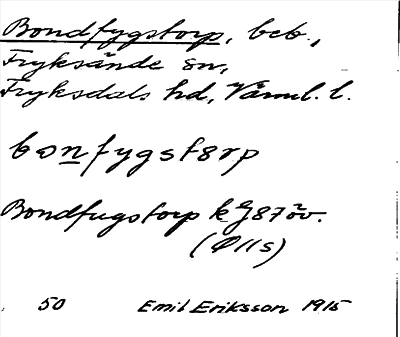 Bondfygstorp, beb.,
Fryksände sn,
Fryksdals hd, Värml. l.
bonfygstorp
Bondfugstorp kg 87 öv.
(Ø 11 s)
50 Emil Eriksson 1915